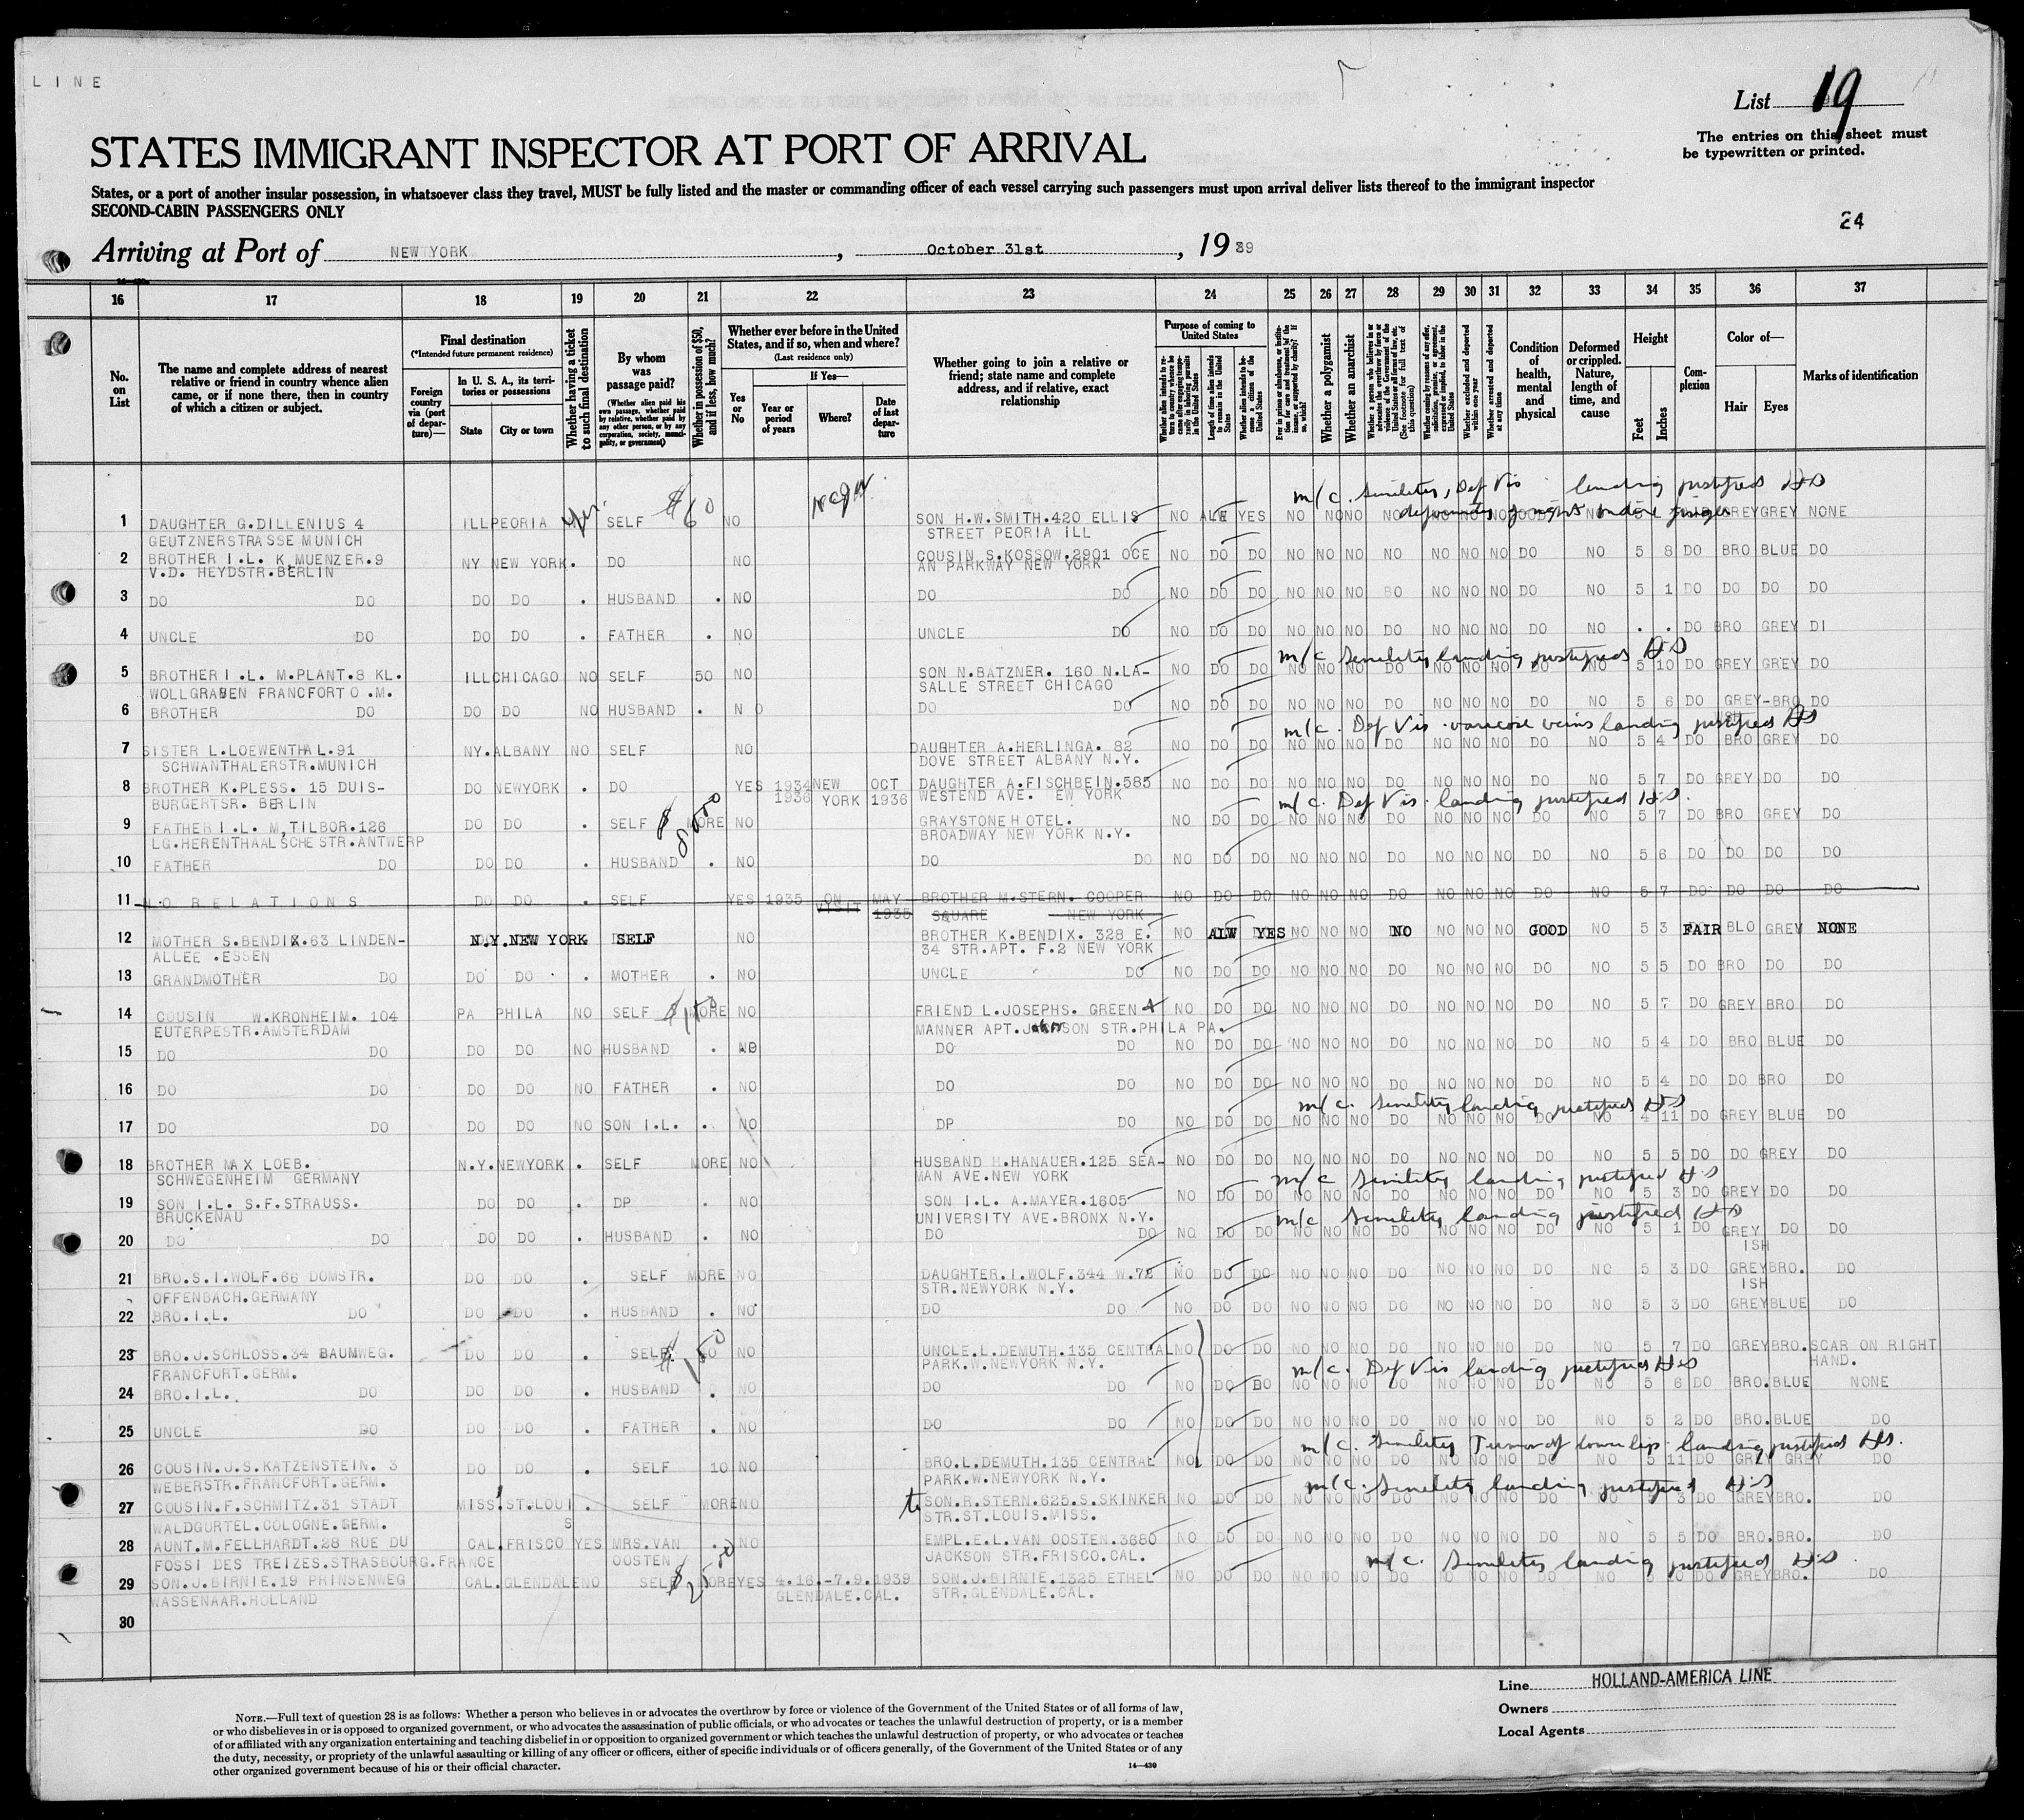 LINE
List 19
The entries on this sheet must
be typewritten or printed.
STATES IMMIGRANT INSPECTOR AT PORT OF ARRIVAL
States, or a port of another insular possession, in whatsoever class they travel, MUST be fully listed and the master or commanding officer of each vessel carrying such passengers must upon arrival deliver lists thereof to the immigrant inspector
SECOND-CABIN PASSENGERS ONLY
24
Arriving at Port of NEW YORK, October 31st, 1939
16 17 18 19 20 21 22 23 24 25 26 27 28 29 30 31 32 33 34 35 36 37
No. on List
The name and complete address of nearest relative or friend in country whence alien came, or if none there, then in country of which a citizen or subject.
Final destination
(*Intended future permanent residence)
Foreign country via (port of departure)—
In U. S. A., its territories or possessions
State
City or town
Whether having a ticket to such final destination
By whom was passage paid?
(Whether alien paid his own passage, whether paid by relative, whether paid by any other person, or by any corporation, society, municipality, or government)
Whether in possession of $50, and if less, how much?
Whether ever before in the United States, and if so, when and where?
(Last residence only)
If Yes—
Yes or No
Year or period of years
Where?
Date of last departure
Whether going to join a relative or friend; state name and complete address, and if relative, exact relationship
Purpose of coming to United States
Length of time alien intends to remain in the United States
Whether alien intends to become a citizen of the United States
Whether a polygamist
Whether an anarchist
Whether excluded and deported within one year
Whether arrested and deported at any time
Condition of health, mental and physical
Deformed or crippled. Nature, length of time, and cause
Height
Feet
Inches
Complexion
Color of—
Hair
Eyes
Marks of identification
m/c. Senility, Def Vis landing justified HS
1 DAUGHTER G.DILLENIUS 4 ILL PEORIA Yes SELF $60 NO SON H.W.SMITH.420 ELLIS NO YES NO NO NO NO GREY GREY NONE
GEUTZNERSTRASSE MUNICH STREET PEORIA ILL
2 BROTHER I.L. K.MUENZER.9 NY NEW YORK . DO NO COUSIN S.KOSSOW.2901 OCE NO DO DO NO NO NO NO NO NO NO DO NO 5 8 DO BRO BLUE DO
V.D. HEYDSTR.BERLIN AN PARKWAY NEW YORK
3 DO DO DO DO . HUSBAND . NO DO DO NO DO DO NO NO NO NO NO NO DO NO 5 1 DO DO DO DO
4 UNCLE DO DO DO . FATHER . NO UNCLE DO NO DO DO NO NO NO DO NO NO NO DO NO . . DO BRO GREY DI
m/c Senility landing justified HS
5 BROTHER I.L. M.PLANT.8 KL. ILL CHICAGO NO SELF 50 NO SON N.BATZNER. 160 N.LA- NO DO DO NO NO NO DO NO NO NO DO NO 5 10 DO GREY GREY DO
WOLLGRABEN FRANCFORT O.M. SALLE STREET CHICAGO
6 BROTHER DO DO DO NO HUSBAND . N O DO DO NO DO DO NO NO NO DO NO NO NO DO NO 5 6 DO GREY-BRO DO
ISH
m/c. Def Vis. varicose veins landing justified HS
7 SISTER L.LOEWENTHAL.91 NY.ALBANY NO SELF NO DAUGHTER A.HERLINGA. 82 NO DO DO NO NO NO DO NO NO NO DO NO 5 4 DO BRO GREY DO
SCHWANTHALERSTR.MUNICH DOVE STREET ALBANY N.Y.
8 BROTHER K.PLESS. 15 DUIS- DO NEWYORK . DO YES 1934 NEW OCT DAUGHTER A.FISCHBEIN.585 NO DO DO NO NO NO DO NO NO NO DO NO 5 7 DO GREY DO DO
BURGERTSR. BERLIN 1936 YORK 1936 WESTEND AVE. EW YORK
m/c. Def Vis. landing justified HS.
9 FATHER I.L. M,TILBOR.126 DO DO . SELF $8000 MORE NO GRAYSTONE HOTEL. NO DO DO NO NO NO DO NO NO NO DO NO 5 7 DO BRO GREY DO
LG.HERENTHAALSCHE STR.ANTWERP BROADWAY NEW YORK N.Y.
10 FATHER DO DO DO . HUSBAND . NO DO DO NO DO DO NO NO NO DO NO NO NO DO NO 5 6 DO DO DO DO
11 NO RELATIONS DO DO . SELF YES 1935 ON MAY BROTHER M.STERN. COOPER NO DO DO NO NO NO DO NO NO NO DO NO 5 7 DO DO DO DO
VISIT 1935 SQUARE NEW YORK
12 MOTHER S.BENDIX.63 LINDEN- N.Y.NEW YORK SELF NO BROTHER K.BENDIX. 328 E. NO ALW YES NO NO NO NO NO NO NO GOOD NO 5 3 FAIR BLO GREY NONE
ALLEE .ESSEN 34 STR.APT. F.2 NEW YORK
13 GRANDMOTHER DO DO DO . MOTHER . NO UNCLE DO NO DO DO NO NO NO DO NO NO NO DO NO 5 5 DO BRO DO DO
14 COUSIN W.KRONHEIM. 104 PA PHILA NO SELF $150 MORE NO FRIEND L.JOSEPHS. GREEN NO DO DO NO NO NO DO NO NO NO DO NO 5 7 DO GREY BRO DO
EUTERPESTR.AMSTERDAM MANNER APT.JOHNSON STR.PHILA PA.
15 DO DO DO DO NO HUSBAND . NO DO DO NO DO DO NO NO NO DO NO NO NO DO NO 5 4 DO BRO BLUE DO
16 DO DO DO DO NO FATHER . NO DO DO NO DO DO NO NO NO DO NO NO NO DO NO 5 4 DO DO BRO DO
m/c. Senility landing justified HS
17 DO DO DO DO NO SON I.L. . NO DP DO NO DO DO NO NO NO DO NO NO NO DO NO 4 11 DO GREY BLUE DO
18 BROTHER MAX LOEB. N.Y.NEWYORK . SELF MORE NO HUSBAND H.HANAUER.125 SEA- NO DO DO NO NO NO DO NO NO NO DO NO 5 5 DO DO GREY DO
SCHWEGENHEIM GERMANY MAN AVE.NEW YORK
m/c Senility landing justified HS
19 SON I.L. S.F.STRAUSS. DO DO . DP . NO SON I.L. A.MAYER.1605 NO DO DO NO NO NO DO NO NO NO DO NO 5 3 DO GREY DO DO
BRUCKENAU UNIVERSITY AVE.BRONX N.Y.
m/c Senility landing justified HS
20 DO DO DO DO . HUSBAND . NO DO DO NO DO DO NO NO NO DO NO NO NO DO NO 5 1 DO GREY DO DO
ISH
21 BRO.S.I.WOLF.66 DOMSTR. DO DO . SELF MORE NO DAUGHTER.I.WOLF.344 W.72 NO DO DO NO NO NO DO NO NO NO DO NO 5 3 DO GREY BRO. DO
OFFENBACH.GERMANY STR.NEWYORK N.Y. ISH
22 BRO.I.L. DO DO DO . HUSBAND . NO DO DO NO DO DO NO NO NO DO NO NO NO DO NO 5 3 DO GREY BLUE DO
23 BRO.J.SCHLOSS.34 BAUMWEG. DO DO . SELF $150 NO UNCLE.L.DEMUTH.135 CENTRAL NO DO DO NO NO NO DO NO NO NO DO NO 5 7 DO GREY BRO. SCAR ON RIGHT
FRANCFORT.GERM. PARK.W.NEWYORK N.Y. HAND.
m/c. Def Vis landing justified HS
24 BRO.I.L. DO DO DO . HUSBAND . NO DO DO NO DO DO NO NO NO DO NO NO NO DO NO 5 6 DO BRO. BLUE NONE
25 UNCLE DO DO DO . FATHER . NO DO DO NO DO DO NO NO NO DO NO NO NO DO NO 5 2 DO BRO. BLUE DO
m/c. Senility Tumor of lower lip. landing justified HS.
26 COUSIN.J.S.KATZENSTEIN. 3 DO DO . SELF 10 NO BRO.L.DEMUTH.135 CENTRAL NO DO DO NO NO NO DO NO NO NO DO NO 5 11 DO GREY GREY DO
WEBERSTR.FRANCFORT.GERM. PARK.W.NEWYORK N.Y.
m/c. Senility landing justified HS
27 COUSIN.F.SCHMITZ.31 STADT MISS. ST.LOUI . SELF MORE NO to SON.R.STERN.625.S.SKINKER NO DO DO NO NO NO DO NO NO NO DO NO 5 3 DO GREY BRO. DO
WALDGURTEL.COLOGNE.GERM. S STR.ST.LOUIS.MISS.
28 AUNT.M.FELLHARDT.28 RUE DU CAL.FRISCO YES MRS.VAN . NO EMPL.E.L.VAN OOSTEN.3680 NO DO DO NO NO NO DO NO NO NO DO NO 5 5 DO BRO. BRO. DO
FOSSI DES TREIZES.STRASBOURG.FRANCE OOSTEN JACKSON STR.FRISCO.CAL.
m/c. Senility landing justified HS.
29 SON.J.BIRNIE.19 PRINSENWEG CAL.GLENDALE NO SELF MORE YES 4.16.-7.9.1939 SON.J.BIRNIE.1325 ETHEL NO DO DO NO NO NO DO NO NO NO DO NO 5 10 DO GREY BRO. DO
WASSENAAR.HOLLAND GLENDALE.CAL. STR.GLENDALE.CAL.
30
Line HOLLAND-AMERICA LINE
Owners
Local Agents
NOTE.—Full text of question 28 is as follows: Whether a person who believes in or advocates the overthrow by force or violence of the Government of the United States or of all forms of law,
or who disbelieves in or is opposed to organized government, or who advocates the assassination of public officials, or who advocates or teaches the unlawful destruction of property, or is a member
of or affiliated with any organization entertaining and teaching disbelief in or opposition to organized government or which teaches the unlawful destruction of property, or who advocates or teaches
the duty, necessity, or propriety of the unlawful assaulting or killing of any officer or officers, either of specific individuals or of officers generally, of the Government of the United States or of any
other organized government because of his or their official character.
14—430